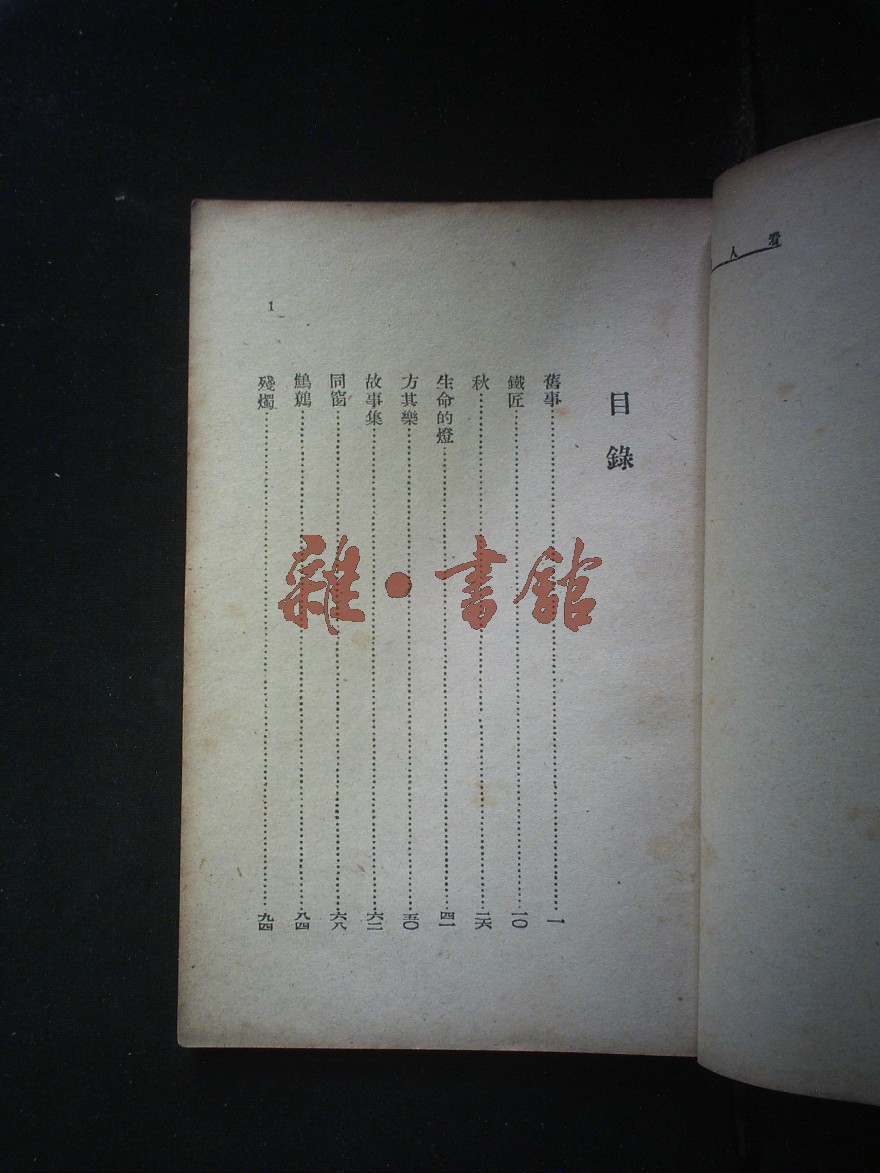 看人
目錄
舊事…………一
鐵匠…………一〇
秋…………二六
生命的燈…………四一
方其樂…………五〇
故事集…………六二
同窗…………六八
…………八四
殘燭…………九四
1
雜·書館